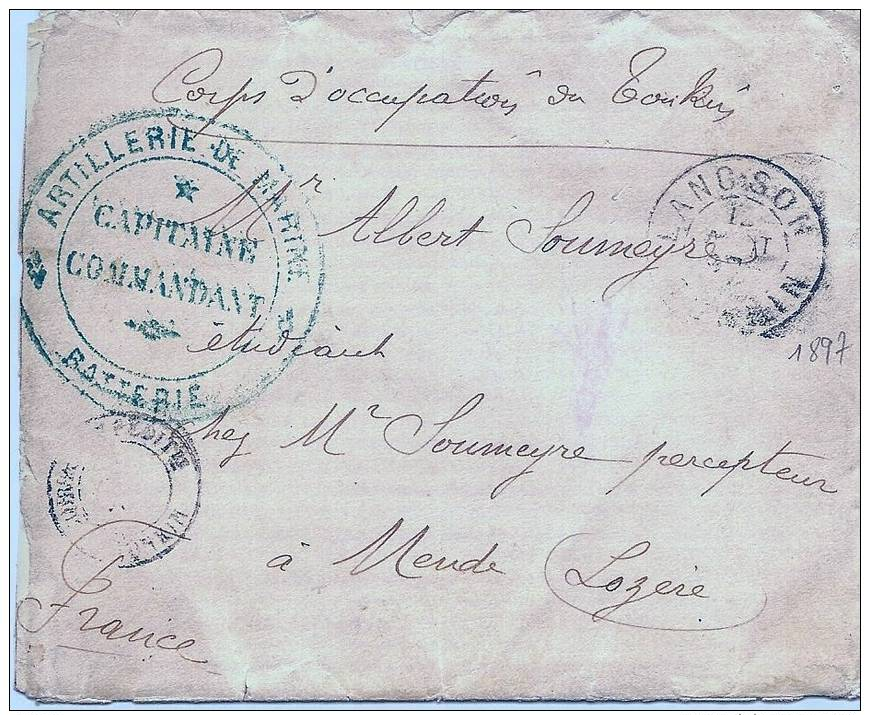 Corps d'occupation du Tonkin
ARTILLERIE DE MARINE
CAPITAINE
COMMANDANT
BATTERIE
LANG-SON
Mr Albert Soumeyre
1897
étudiant
chez Mr Soumeyre percepteur
à Mende (Lozère
France